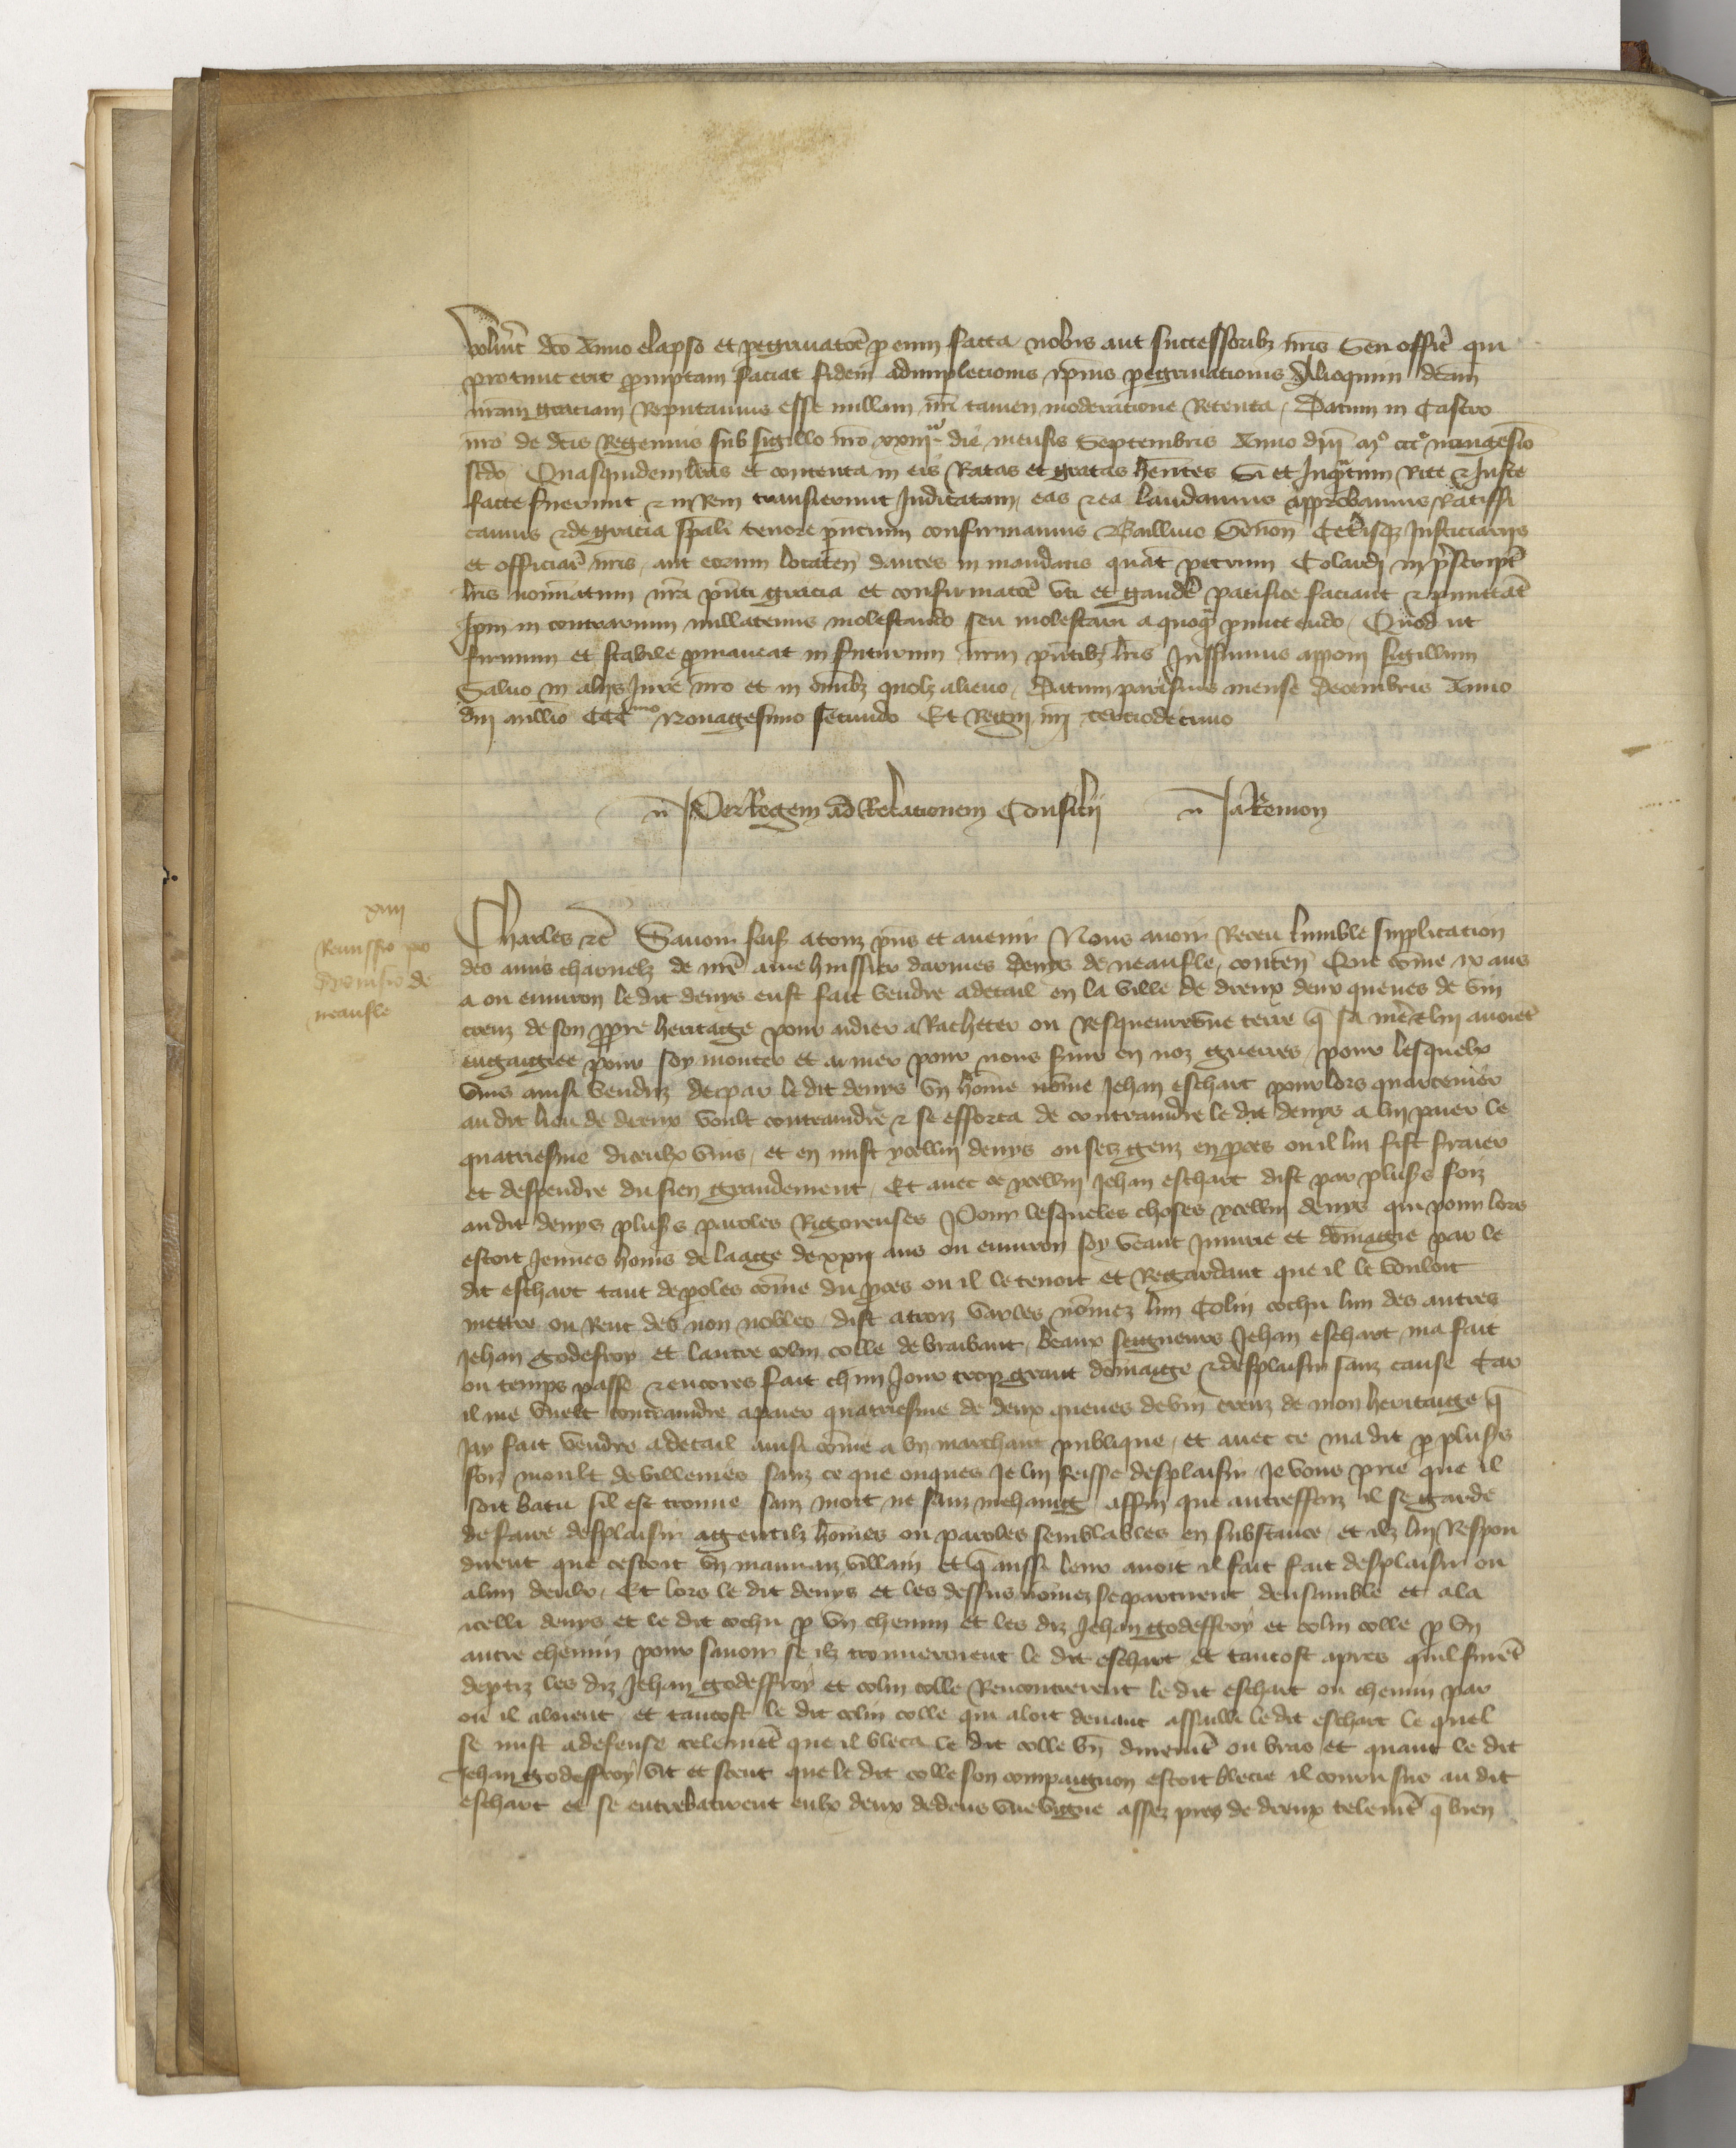 voluerit dco Anno elapso et pegrinatoe p eum facta nobis aut successoribz nris seu officar qui
pro tunc erit promptam faciat fidem adimplecionis ipius pegrinationis Alioquin dcam
nram graciam Reputamus esse nullam nra tamen moderatione Retenta, Datum in Castro
nro de dcis sub sigillo nro xxiiija die mensis Septembris Anno dni mo ccco nonagesimo
scdo Quasquidem lras et contenta in eis Ratas et gratas hentes Si et Inqtum Rite & Juste
facte fuerunt & in Rem transierunt Judicatam, eas & ea laudamus approbamus Ratiffi
camus & de gracia spali tenore pncium confirmamus Baillivo Senon Ceterisqz Justiciariis
et officiar nris, aut eorum locaten dantes in mandatis quat petrum Colardi in prescript
lris nominatum nra pnti gracia et confirmatoe uti et gaude pacifice faciant & pmittat
Ipm in contrarium nullatenus molestando seu molestari a quoq pmittendo, Quod ut
firmum et stabile pmaneat in futurum nrm pntibz lris Jussimus apponi sigillum
Salvo in aliis Jure nro et in omibz quolz alieno, Datum parisius mense decembris Anno
dni millio CCCmo Nonagesimo secundo Et Regni nri terciodecimo
Per Regem ad Relationem Consilii Ja Remon
xiiij
Remissio pro
Dionisio de
neaufle
Charles &c Savoir faisz a touz pns et avenir Nous avoir Receu lumble supplication
des amis charnelz de nre ame huissier darmes Denys de neaufle, conten Que come ix ans
a ou environ le dit denys eust fait vendre a detail en la ville de dreux deux queues de vin
creuz de son ppre heritaige pour aidier a Racheter ou Resqueurre une terre q sa mere & lui avoiet
engaigiee pour soy monter et armer pour nous suir en noz guerres, pour lesquelx
vins ainsi venduz de par le dit denys vn home nome Jehan eschart pour lors quartenier
au dit lieu de dreux voult contraindre & se efforca de contraindre le dit denys a lui paier le
quatriesme diceulx vins, et en mist ycellui denys ou ses gens en pces ou il lui fist fraier
et despendre du sien grandement, Et avec ce ycellui Jehan eschart dist par plusrs foiz
au dit denys plusrs paroles Rigoreuses Pour lesqueles choses ycellui denys qui pour lors
estoit Jeunes homs de laage de xxij ans ou environ soy veant Injurie et domagie par le
dit eschart tant de poles come du pces ou il le tenoit et Regardant que il le vouloit
mettre ou Renc des non nobles dist a trois varles nomez lun Colin cochu lun des autres
Jehan godefroy et lautre colin colle de braibant, beaux seigneurs Jehan eschart ma fait
ou temps passe & encores fait chun Jour trop grant domaige & desplaisir sanz cause Car
il me vuelt contraindre a paier quatriesme de deux queues de vin creuz de mon heritaige q
Jay fait vendre a detail ainsi come a vn marchant publique, et avec ce ma dit p plusrs
foiz moult de villenies sanz ce que onques Je lui feisse desplaisir Je vous prie que il
soit batu sil est trouve sanz mort ne sanz mehaing affin que autreffoiz il se garde
de faire desplaisir a gentilz homes ou paroles semblables en substance, et ilz lui Respon
dirent que cestoit vn mauvaiz villain et q aussi leur avoit il fait fait desplaisir ou
a lun deulx, Et lors le dit denys et les dessus nomez se partirent densamble et ala
icelli denys et le dit cochu p vn chemin et les diz Jehan godeffroy et colin colle p vn
autre chemin pour savoir se ilz trouveroient le dit eschart et tantost apres quil furet
deptiz les diz Jehan godeffroy et colin colle Rencontrerent le dit eschart ou chemin par
ou il aloient et tantost le dit colin colle qui aloit devant assailli le dit eschart le quel
se mist a defense telemet que il bleca le dit colle vn duremet ou bras et quant le dit
Jehan godeffroy vit et sceut que le dit colle son compaignon estoit blecie il couru sur au dit
eschart et se entrebatirent eulx deux dedens une vigne assez pres de dreux telemet q bien